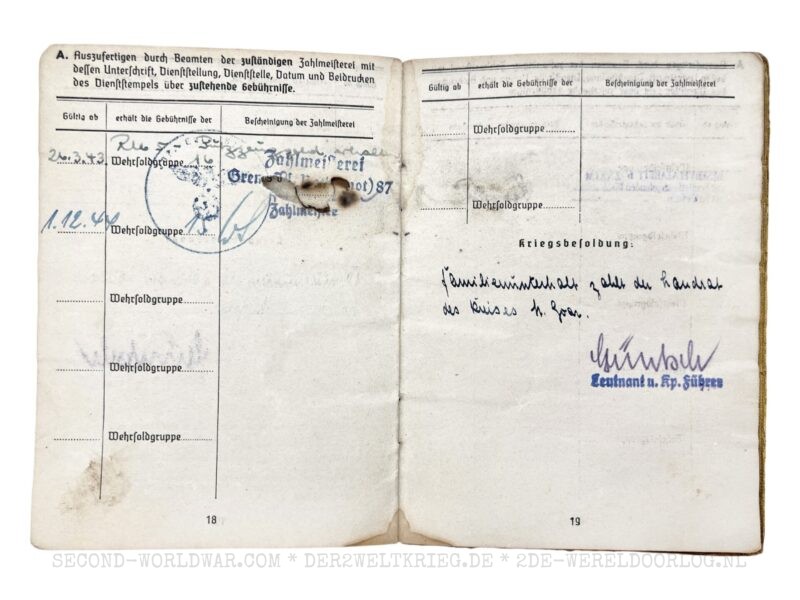 A. Auszufertigen durch Beamten der zuständigen Zahlmeisterei mit
dessen Unterschrift, Dienststellung, Dienststelle, Datum und Beidrucken
des Dienststempels über zustehende Gebührnisse.
Gültig ab erhält die Gebührnisse der Bescheinigung der Zahlmeisterei
26.3.43 Wehrsoldgruppe 16
Zahlmeisterei
Gren. 87
Zahlmeister
1.12.44 Wehrsoldgruppe 15
Wehrsoldgruppe
Wehrsoldgruppe
Wehrsoldgruppe
18
Gültig ab erhält die Gebührnisse der Bescheinigung der Zahlmeisterei
Wehrsoldgruppe
Wehrsoldgruppe
Kriegsbesoldung:
Familienunterhalt zahlt der Landrat
des Kreises St. Goar.
Leutnant u. Kp. Führer
19
SECOND-WORLDWAR.COM * DER2WELTKRIEG.DE * 2DE-WERELDOORLOG.NL